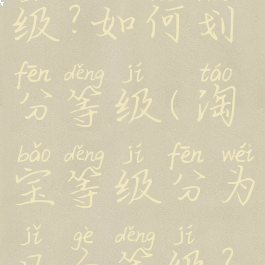 级？如何划
fēn děng jí táo
分等级(淘
bǎo děng jí fēn wéi
宝等级分为
jǐ gè děng jí